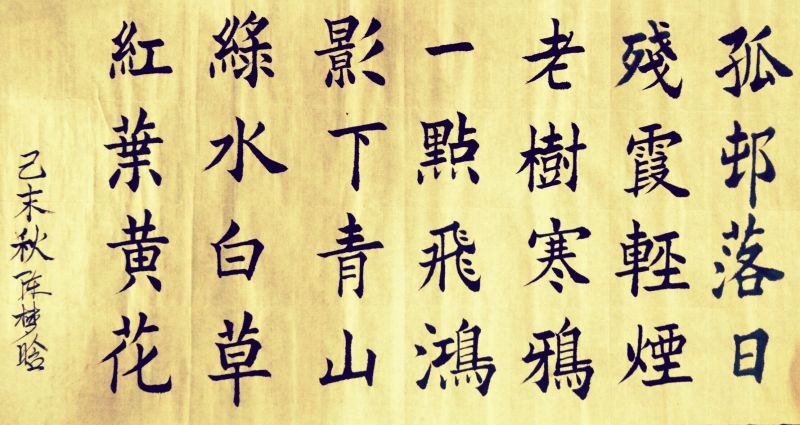 孤邨落日
殘霞輕煙
老樹寒鴉
一點飛鴻
影下青山
綠水白草
紅葉黃花
己未秋陈梦晗